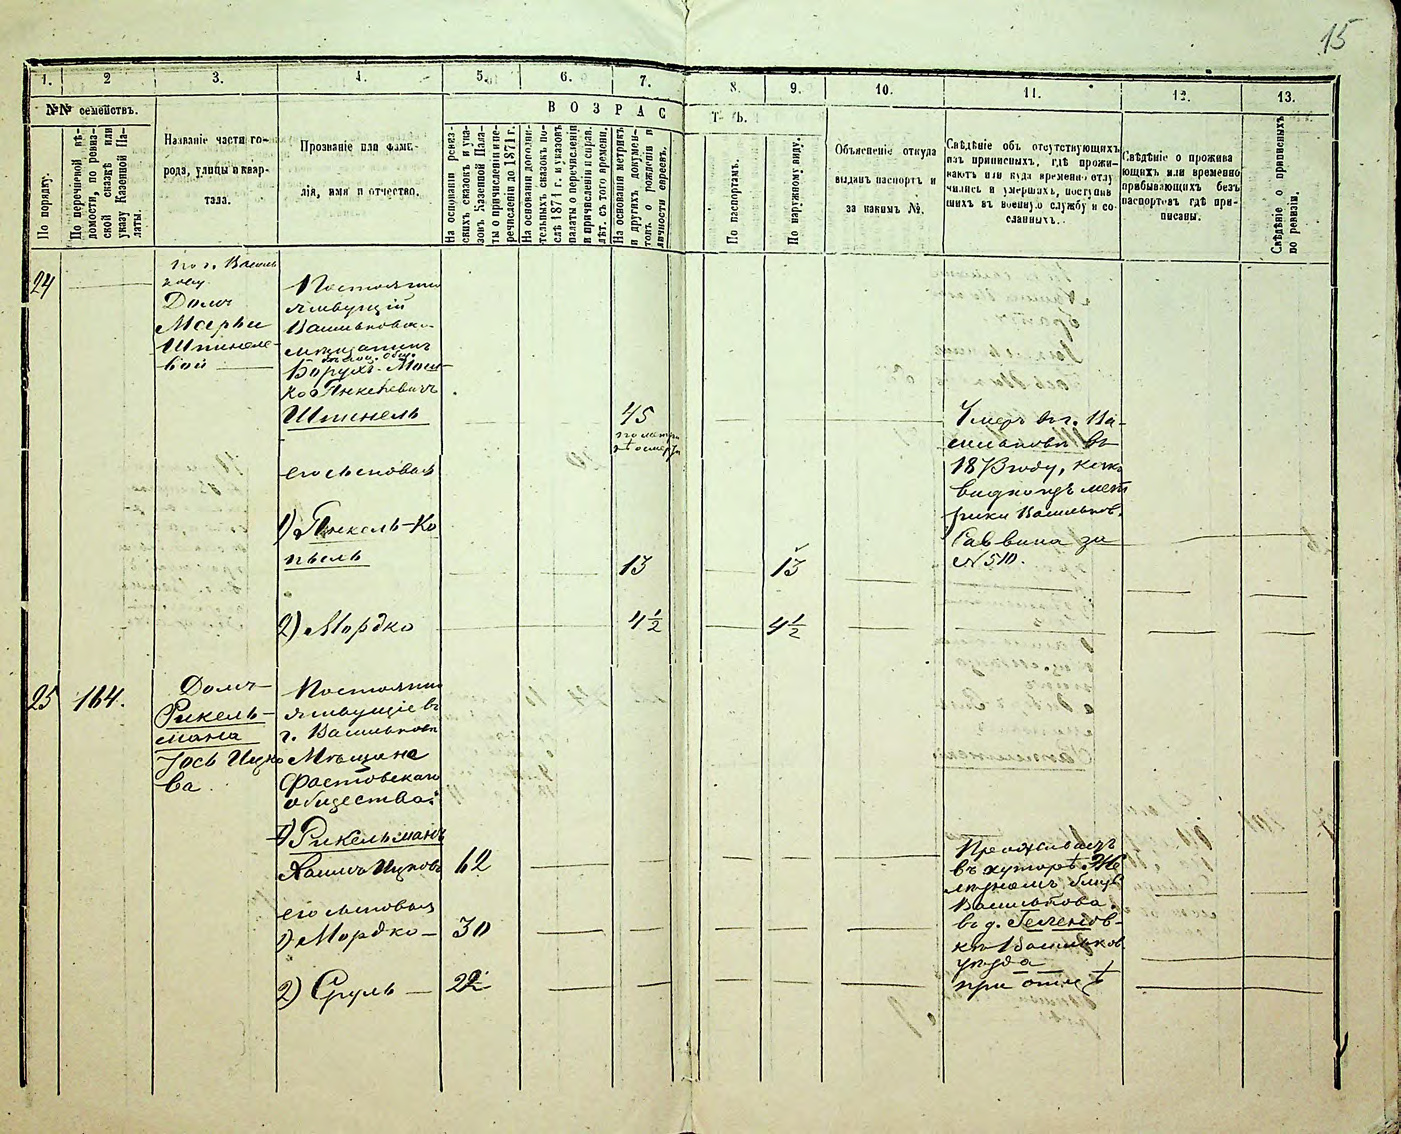 15
1. 2 3. 4. 5. 6. 7. 8. 9. 10. 11. 12. 13.
№№ семействъ.
По порядку.
По перечневой вѣ-
домости, по ревиз-
ской сказкѣ или
указу Казенной Па-
латы.
Названіе части го-
рода, улицы и квар-
тала.
Прозваніе или фами-
лія, имя и отчество.
ВОЗРАС
Т Ъ.
На основаніи ревиз-
скихъ сказокъ и ука-
зовъ Казенной Пала-
ты о причисленіи и пе-
речисленіи до 1871 г.
На основаніи дополни-
тельныхъ сказокъ по-
слѣ 1871 г. и указовъ
палаты о перечисленіи
и причисленіи и справ.
лѣт. съ того времени.
На основаніи метрикъ
и другихъ докумен-
товъ о рожденіи и
личности евреевъ.
По паспортамъ.
По наружному виду.
Объясненіе откуда
выданъ паспортъ и
за какимъ №.
Свѣдѣніе объ отсутствующихъ
изъ приписныхъ, гдѣ прожи-
ваютъ или куда временно отлу
чились и умершихъ, поступив
шихъ въ военную службу и со-
сланныхъ.
Свѣдѣніе о прожива
ющихъ или временно
прибывающихъ безъ
паспортовъ гдѣ при-
писаны.
Свѣдѣніе о приписныхъ
по ревизіи.
24
по г. Василь
кову
Домъ
Марьи
Шпинеле-
вой
Постоянно
живущій
Васильковск.
мѣщанинъ
Борухъ-Мош-
ко Янкелевичъ
Шпинель
45
по метри
Умеръ въ г. Ва-
сильковѣ въ
187 году, какъ
видно изъ мет
рики Васильков.
Раввина за
№ 510.
его сыновья
1) Янкель-Ко
пель
13
13
2) Мордко
4½
4½
25
164.
Домъ
Рикель-
мана
Іось Ицко
ва
Постоянно
живущіе въ
г. Васильковѣ
Мѣщане
Фастовскаго
общества:
1) Рикельманъ
Хаимъ Ицковъ
62
Проживаетъ
въ хуторѣ
близь
Василькова.
его сыновья
1) Мордко
30
въ д. Геленов-
кѣ Васильков
уѣзда
2) Сруль
22
при отцѣ